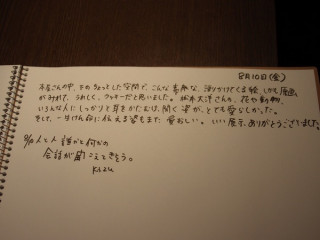 8月10日(金)
不忍の中、下のちょっとした空間で、こんな素敵な、語りかけてくる絵、しかも原画
がみれて、うれしく、ラッキーだと思いました。松本大洋さんの、花や動物、
いろんな人にしっかりと耳をかたむけ、聞く姿が、とても愛らしかった。
そして、一生けん命に伝える姿もまた愛おしい。いい展示、ありがとうございました。
8/10 人と人 誰かと何かの
会話が聞こえてきそう。